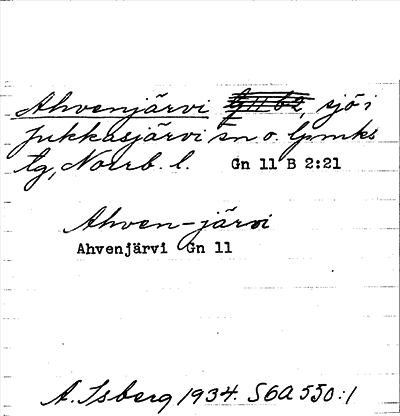 Ahvenjärvi, sjö i
Jukkasjärvi sn o. lpmks
tg, Norrb. l. Gn 11 B 2:21
Ahven-järvi
Ahvenjärvi Gn 11
A. Isberg 1934. S6A 550:1